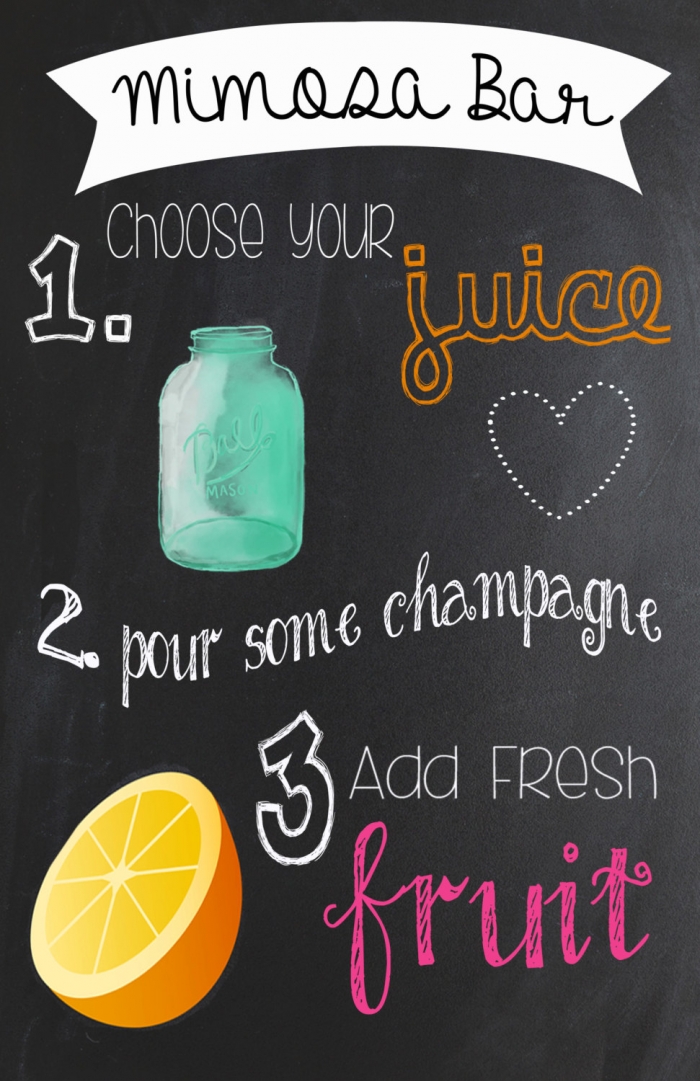 mimosa Bar
1. Choose your
juice
MASON
2. pour some champagne
3 Add FResh
fruit